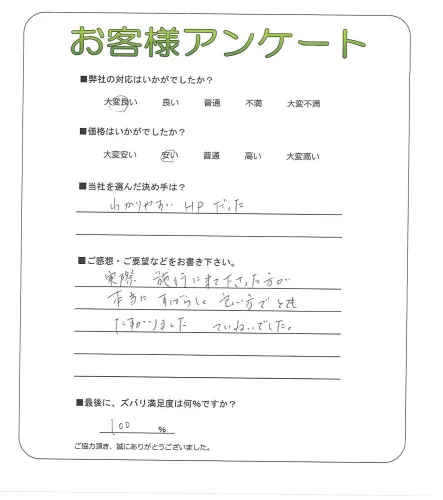 お客様アンケート
■弊社の対応はいかがでしたか？
大変良い 良い 普通 不満 大変不満
■価格はいかがでしたか？
大変安い 安い 普通 高い 大変高い
■当社を選んだ決め手は？
わかりやすい HP だった
■ご感想・ご要望などをお書き下さい。
実際 施行に来て下さった方が
本当に すばらしく 方でとても
たすかりました ていねいでした。
■最後に、ズバリ満足度は何%ですか？
100 %
ご協力頂き、誠にありがとうございました。